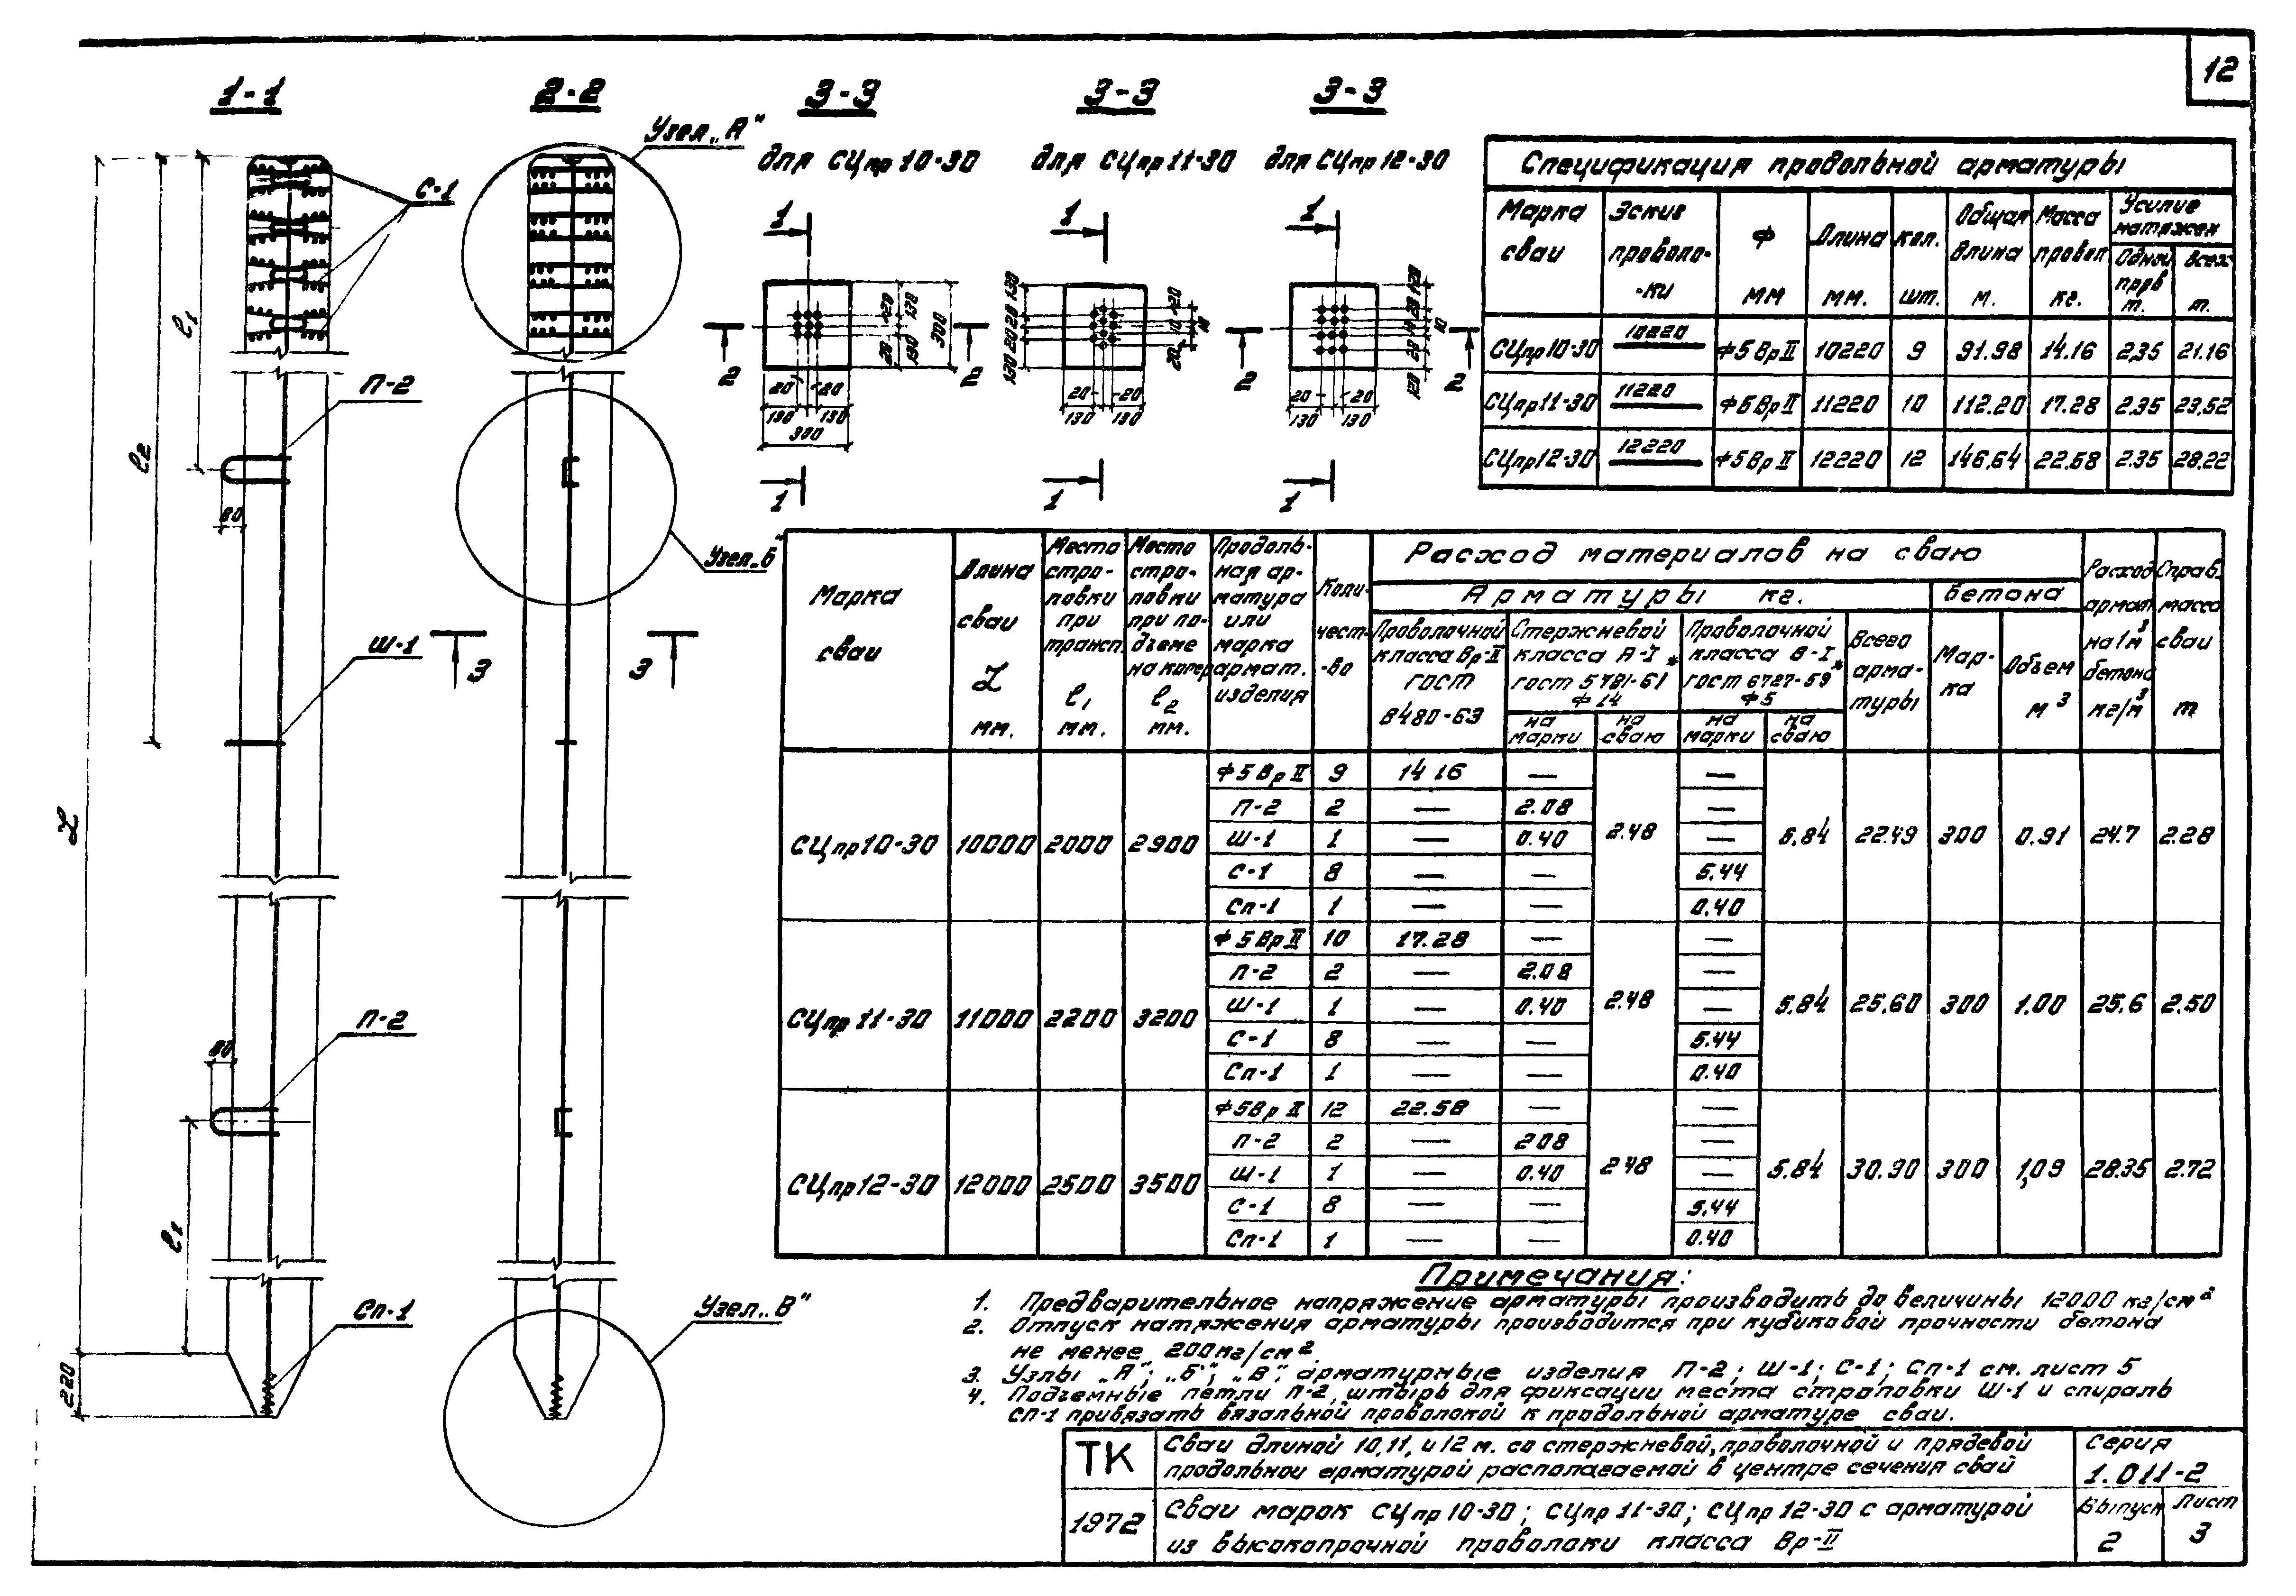 12
1-1
2-2
3-3
для СЦпр 10-30
3-3
для СЦпр 11-30
3-3
для СЦпр 12-30
Узел „А"
С-1
П-2
Узел „Б"
Ш-1
П-2
Сп-1
Узел „В"
ℓ1
ℓ2
L
ℓ1
80
80
220
3 3
1 1 1
2 2 2 2
1 1 1
20 20
130 130
300
300
20 20
130 130
20 20
130 130
Спецификация продольной арматуры
Марка сваи
Эскиз проволо-ки
Ф мм
Длина мм.
Кол. шт.
Общая длина м.
Масса провол кг.
Усилие натяжен
Одной пров т.
Всех т.
СЦпр 10-30 10220 Ф5ВрII 10220 9 91.98 14.16 2.35 21.16
СЦпр 11-30 11220 Ф5ВрII 11220 10 112.20 17.28 2.35 23.52
СЦпр 12-30 12220 Ф5ВрII 12220 12 146.64 22.58 2.35 28.22
Марка сваи
Длина сваи L мм.
Место стро-повки при трансп. ℓ1 мм.
Место стро-повки при по-дъеме на копер ℓ2 мм.
Продоль-ная ар-матура или марка армат. изделия
Коли-чест-во
Расход материалов на сваю
Арматуры кг.
Бетона
Проволочной класса Вр-II ГОСТ 8480-63
Стержневой класса А-I ГОСТ 5781-61* Ф14
Проволочной класса В-I ГОСТ 6727-53* Ф5
на марки
на сваю
на марки
на сваю
Всего арма-туры
Мар-ка
Объем м3
Расход армат на 1м3 бетона кг/м3
Справ. масса сваи т
СЦпр 10-30 10000 2000 2900
Ф5ВрII 9 14.16 — —
П-2 2 — 2.08 —
Ш-1 1 — 0.40 —
С-1 8 — — 5.44
Сп-1 1 — — 0.40
2.48 5.84 22.49 300 0.91 24.7 2.28
СЦпр 11-30 11000 2200 3200
Ф5ВрII 10 17.28 — —
П-2 2 — 2.08 —
Ш-1 1 — 0.40 —
С-1 8 — — 5.44
Сп-1 1 — — 0.40
2.48 5.84 25.60 300 1.00 25.6 2.50
СЦпр 12-30 12000 2500 3500
Ф5ВрII 12 22.58 — —
П-2 2 — 2.08 —
Ш-1 1 — 0.40 —
С-1 8 — — 5.44
Сп-1 1 — — 0.40
2.48 5.84 30.90 300 1,09 28.35 2.72
Примечания:
1. Предварительное напряжение арматуры производить до величины 12000 кг/см2
2. Отпуск натяжения арматуры производится при кубиковой прочности бетона
не менее 200кг/см2.
3. Узлы „А"; „Б"; „В", арматурные изделия П-2; Ш-1; С-1; Сп-1 см. лист 5
4. Подъемные петли П-2, штырь для фиксации места строповки Ш-1 и спираль
Сп-1 привязать вязальной проволокой к продольной арматуре сваи.
ТК
Сваи длиной 10, 11, и 12 м. со стержневой, проволочной и прядевой
продольной арматурой располагаемой в центре сечения свай
Серия
1.011-2
1972
Сваи марок СЦпр 10-30; СЦпр 11-30; СЦпр 12-30 с арматурой
из высокопрочной проволоки класса Вр-II
Выпуск
2
Лист
3